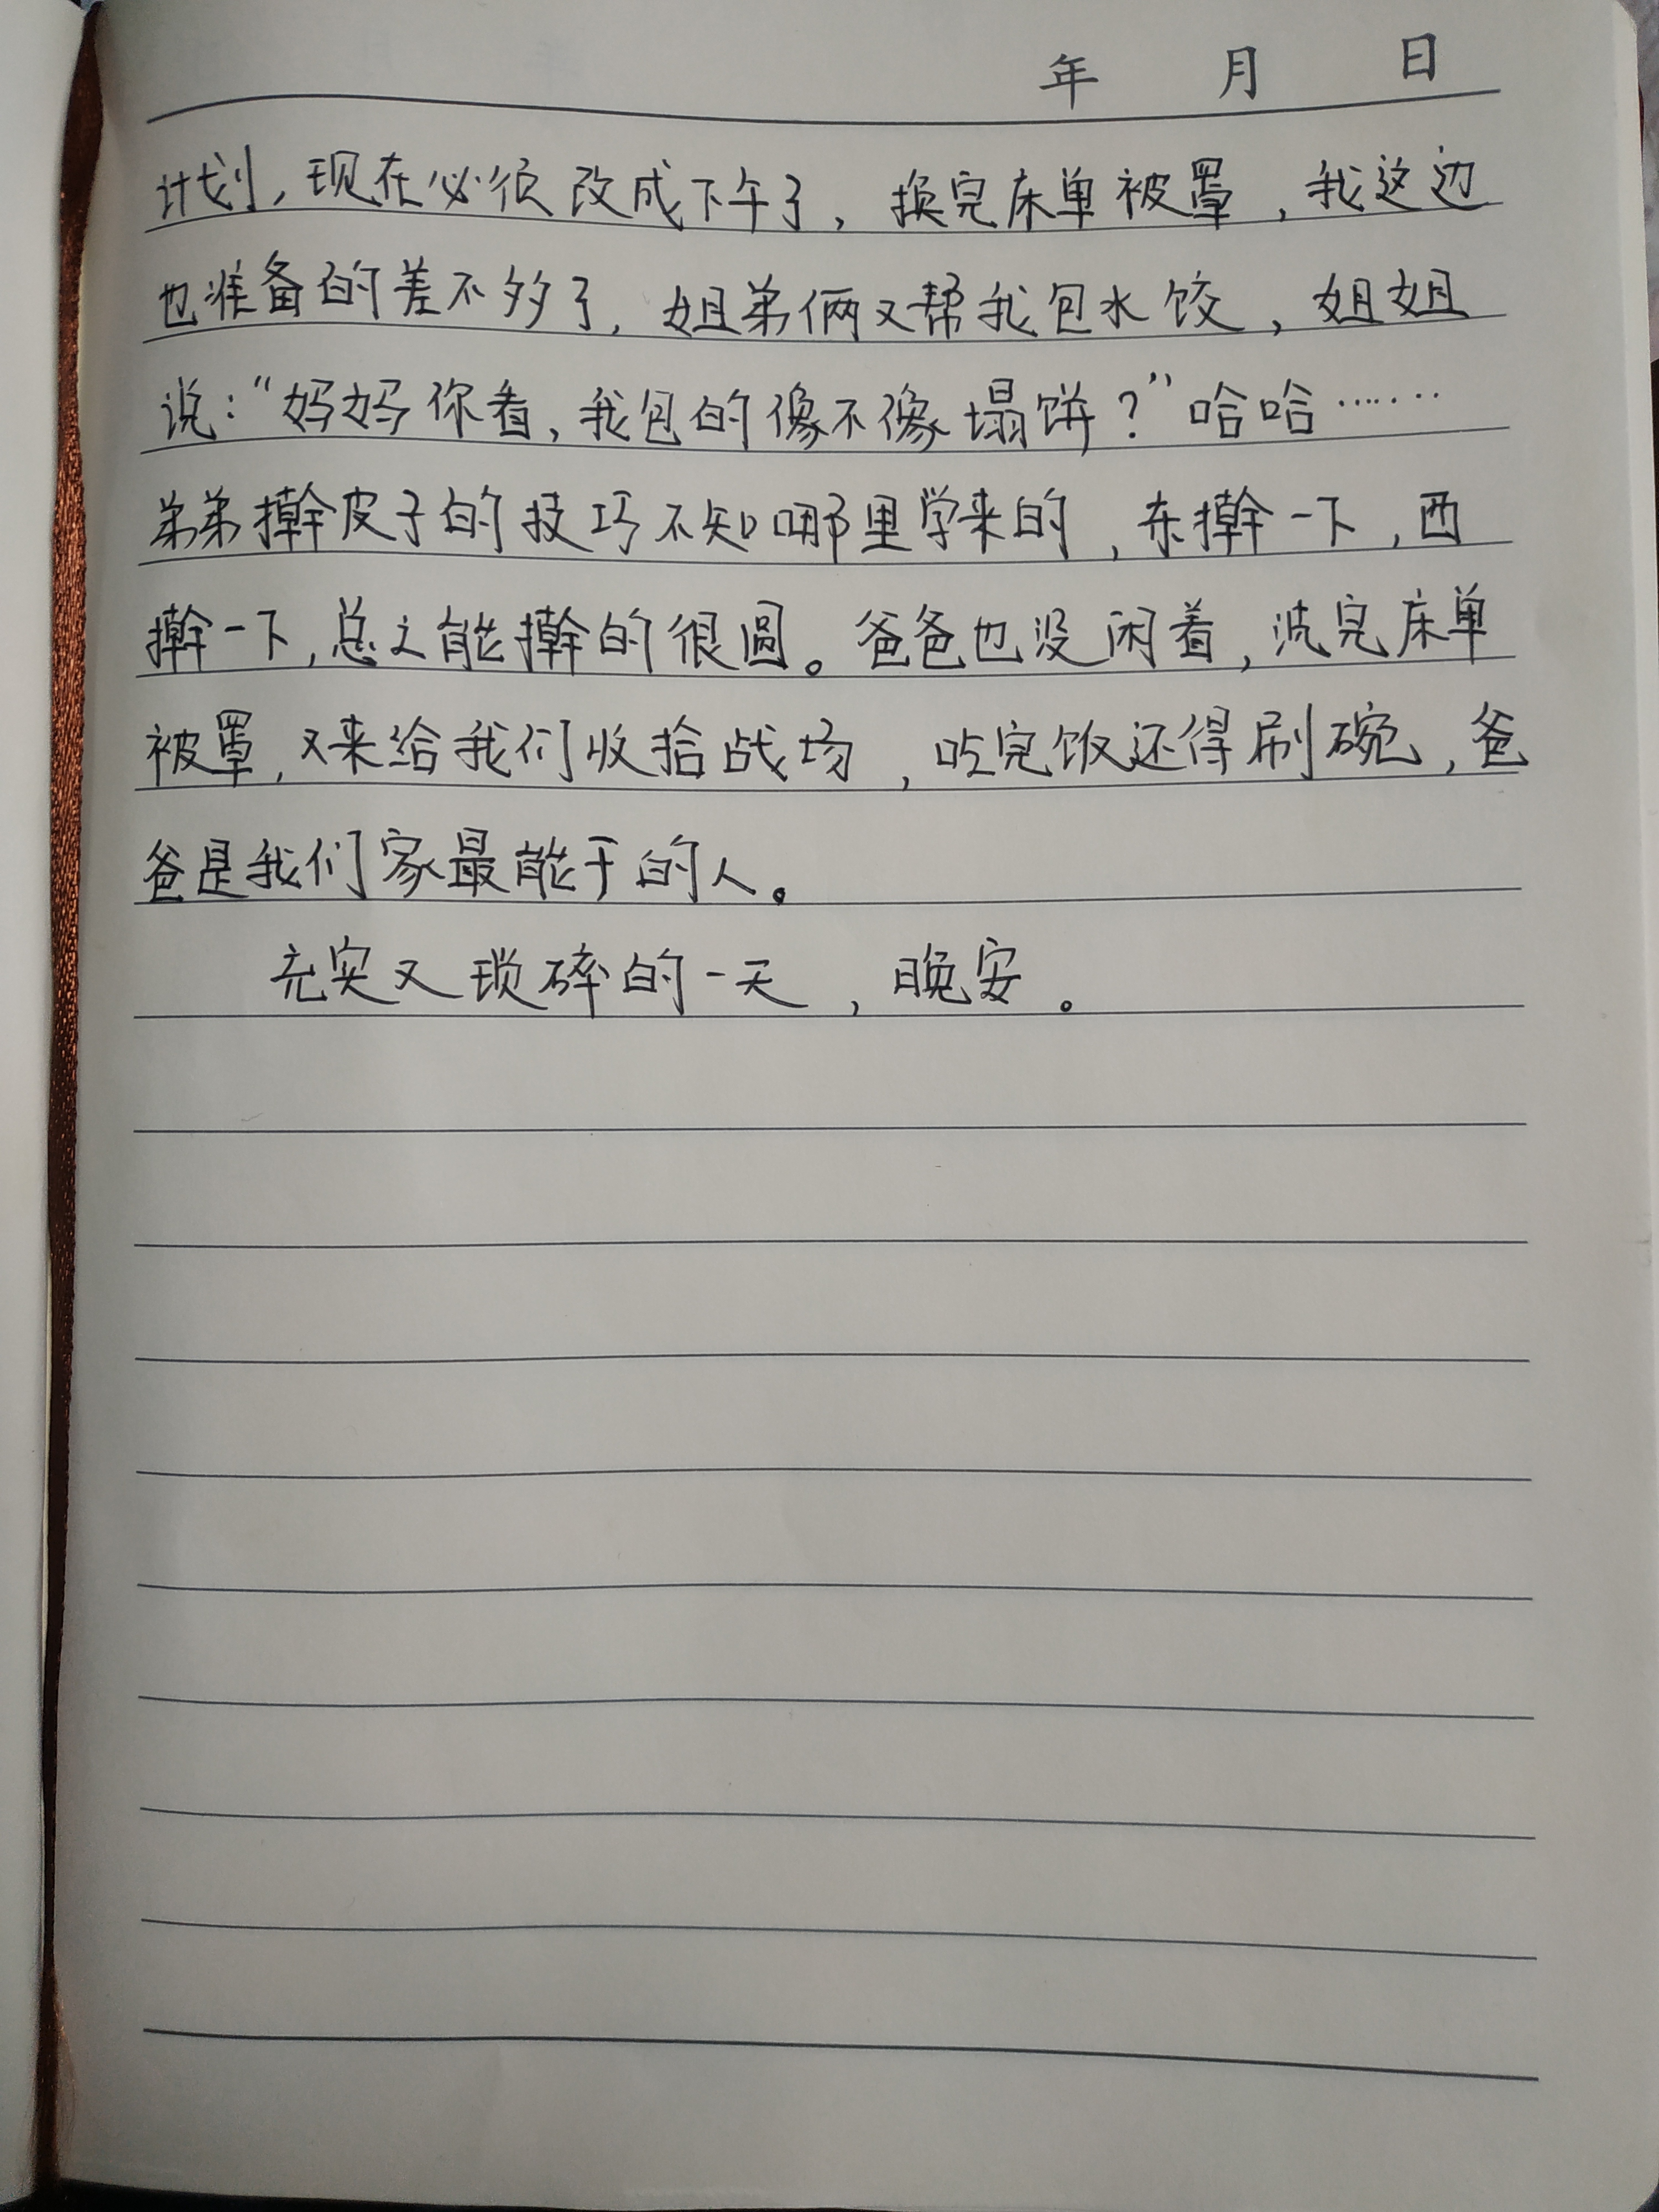 年 月 日
计划，现在必须改成下午了，换完床单被罩，我这边
也准备的差不多了，姐弟俩又帮我包水饺，姐姐
说：“妈妈你看，我包的像不像塌饼？”哈哈……
弟弟擀皮子的技巧不知哪里学来的，东擀一下，西
擀一下，总之能擀的很圆。爸爸也没闲着，洗完床单
被罩，又来给我们收拾战场，吃完饭还得刷碗，爸
爸是我们家最能干的人。
充实又琐碎的一天，晚安。